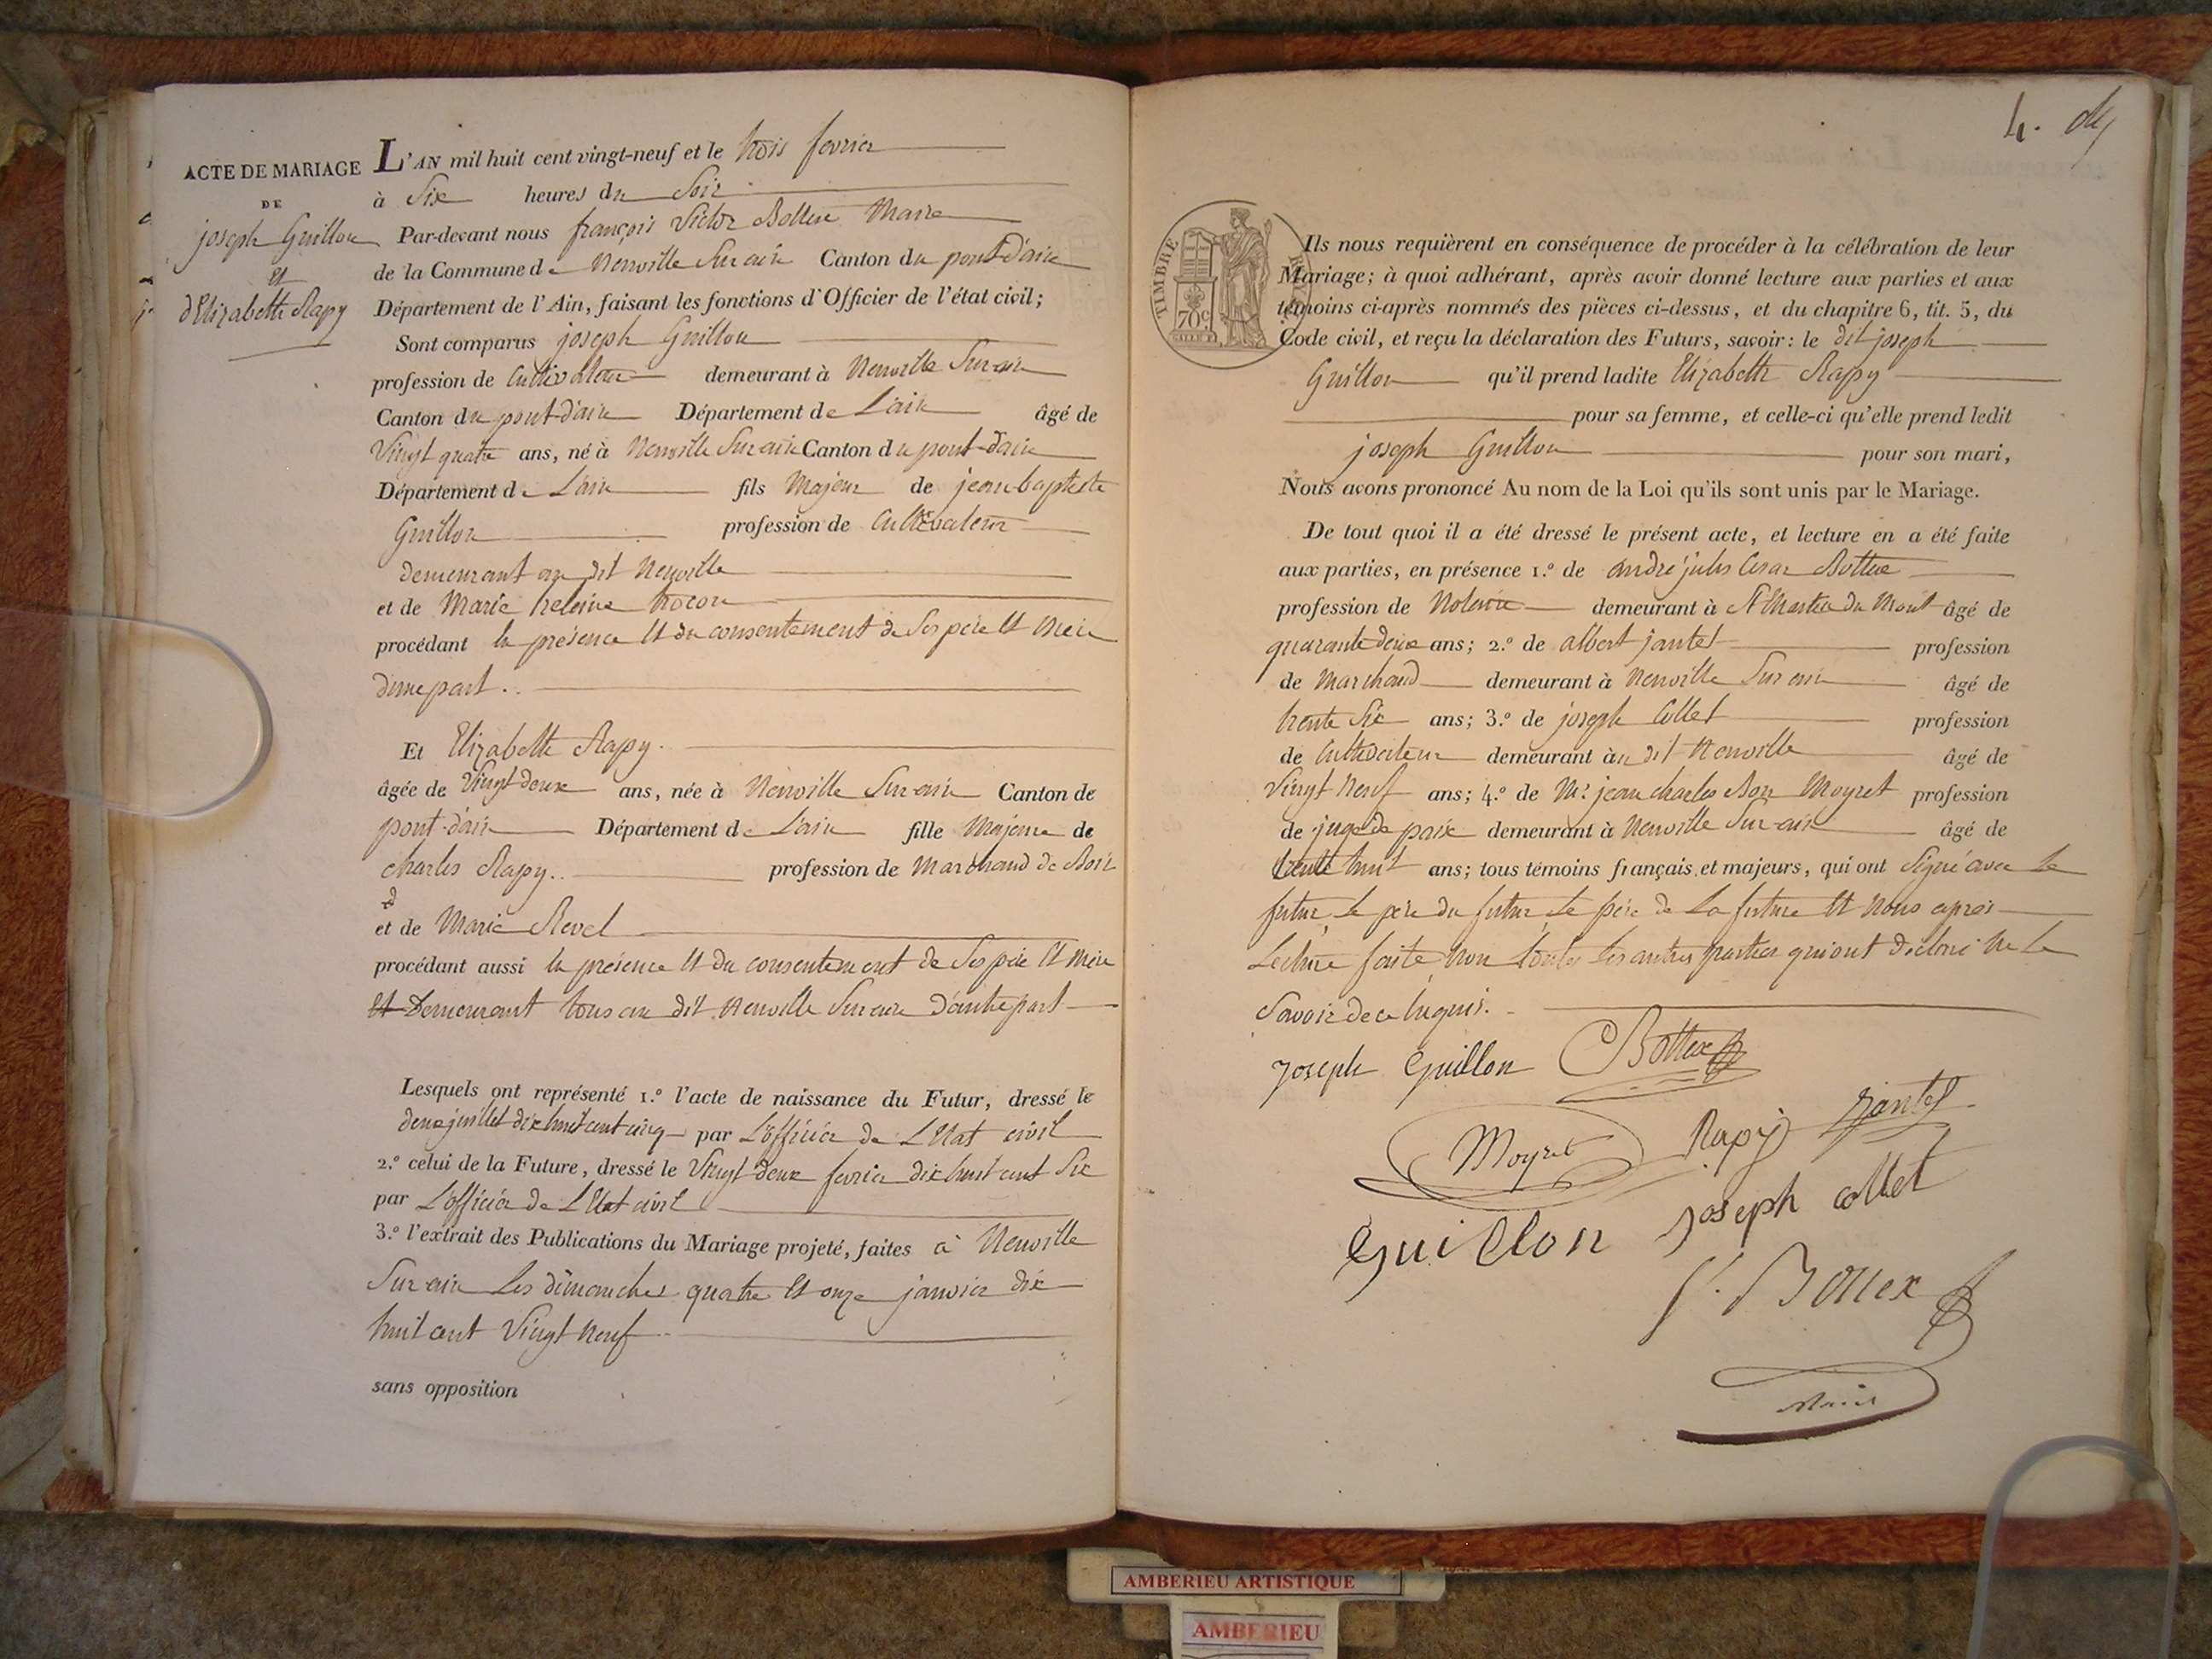 ACTE DE MARIAGE
DE
joseph Guillon
et
d'Elizabeth Rapy
L'AN mil huit cent vingt-neuf et le trois fevrier
à Six heures du Soir
Par-devant nous françois Victor Bottex Maire
de la Commune de Neuville Sur ain Canton du pont-d'ain
Département de l'Ain, faisant les fonctions d'Officier de l'état civil;
Sont comparus joseph Guillon
profession de Cultivateur demeurant à Neuville Sur-ain
Canton du pont-d'ain Département de L'ain âgé de
Vingt quatre ans, né à Neuville Sur ain Canton du pont-dain
Département de L'ain fils Majeur de jean baptiste
Guillon profession de Cultivateur
demeurant au dit Neuville
et de Marie heleine
procédant en présence et du consentement de Ses père et Mère
d'une part.
Et Elizabeth Rapy.
âgée de Vingt-deux ans, née à Neuville Sur-ain Canton de
pont-d'ain Département de L'ain fille Majeure de
charles Rapy.. profession de Marchand de Bois
et de Marie Revel
procédant aussi en présence et du consentement de Ses père et Mère
et Demeurant tous au dit Neuville Sur ain d'autre part
Lesquels ont représenté 1.º l'acte de naissance du Futur, dressé le
deux juillet dix huit cent cinq par L'officier de L'Etat civil
2.º celui de la Future, dressé le Vingt deux fevrier dix huit cent Six
par L'officier de L'Etat civil
3.º l'extrait des Publications du Mariage projeté, faites à Neuville
Sur-ain Les dimanches quatre et onze janvier dix
huit cent Vingt Neuf
sans opposition
4.
TIMBRE R
70c
Ils nous requièrent en conséquence de procéder à la célébration de leur
Mariage; à quoi adhérant, après avoir donné lecture aux parties et aux
témoins ci-après nommés des pièces ci-dessus, et du chapitre 6, tit. 5, du
Code civil, et reçu la déclaration des Futurs, savoir: le dit joseph
Guillon qu'il prend ladite Elizabeth Rapy
pour sa femme, et celle-ci qu'elle prend ledit
joseph Guillon pour son mari,
Nous avons prononcé Au nom de la Loi qu'ils sont unis par le Mariage.
De tout quoi il a été dressé le présent acte, et lecture en a été faite
aux parties, en présence 1.º de andré jules Cesar Bottex
profession de Notaire demeurant à St Martin du Mont âgé de
quarante deux ans; 2.º de albert jantet profession
de Marchand demeurant à Neuville Sur ain âgé de
trente Six ans; 3.º de joseph Collet profession
de Cultivateur demeurant au dit Neuville âgé de
Vingt Neuf ans; 4.º de Mr. jean charles Bon Moyret profession
de juge de paix demeurant à Neuville Sur-ain âgé de
trente huit ans; tous témoins français et majeurs, qui ont Signé avec Le
futur, Le père du futur Le père de La future et Nous apres
Lecture faite, Non toutes Les autres parties qui ont déclaré Ne Le
Savoir de ce Enquis.
joseph Guillon Bottex
Moyret Rapy Jantet
Guillon joseph collet
V. Bottex
Maire
AMBERIEU ARTISTIQUE
AMBERIEU